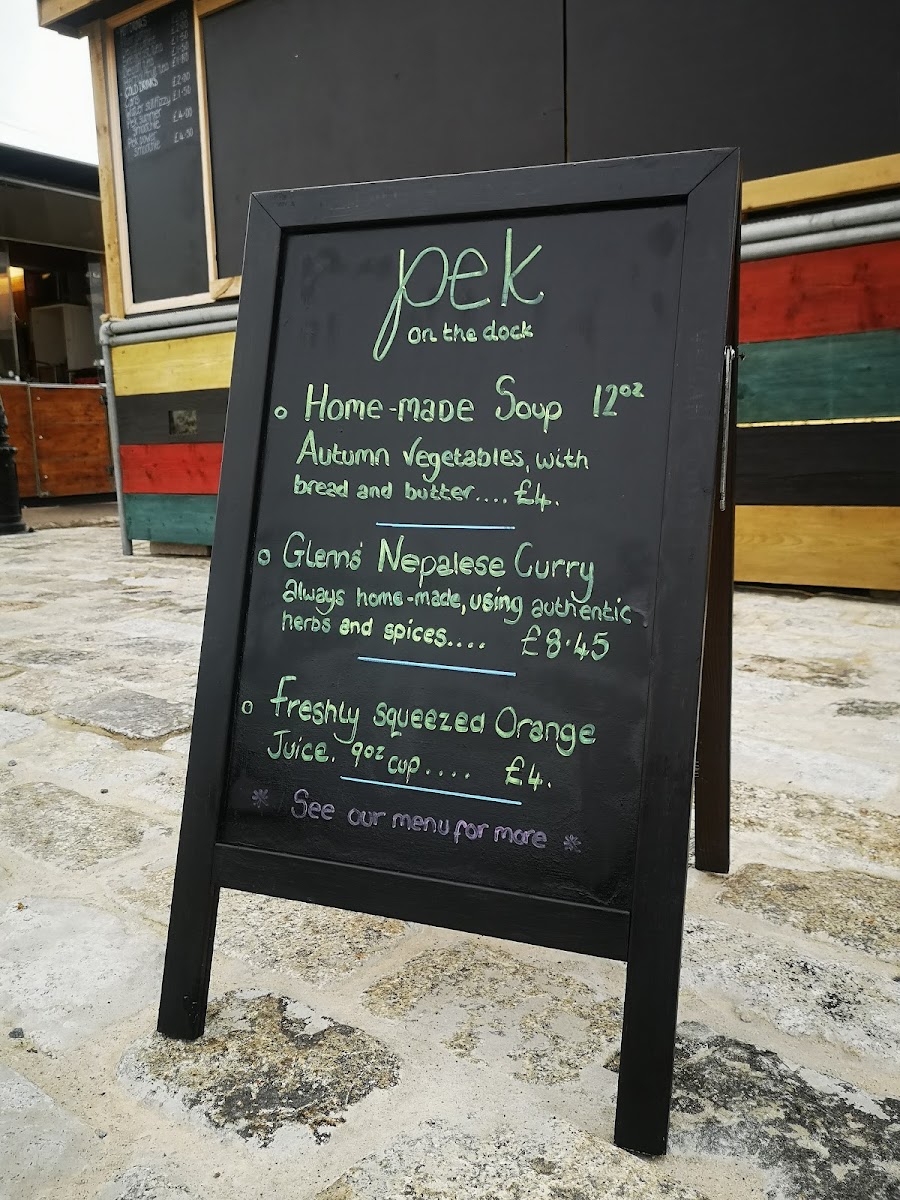 COLD DRINKS
£2.00
Cans
£1.50
Water still/fizzy
Pek summer
smoothie
£4.00
Pek power
smoothie
£4.50
pek
on the dock
Home-made Soup 12oz
Autumn Vegetables, with
bread and butter.... £4.
Glenns' Nepalese Curry
always home-made, using authentic
herbs and spices.... £8.45
Freshly squeezed Orange
Juice. 9oz cup.... £4.
* See our menu for more *